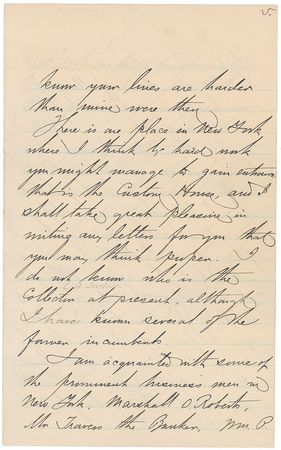 5.
know your lines are harder
than mine were then.
There is one place in New York
where I think by hard work
you might manage to gain entrance
that is the Custom House, and I
shall take great pleasure in
writing any letters for you that
you may think proper. I
do not know who is the
Collector at present, although
I have known several of the
former incumbents.
I am acquainted with some of
the prominent business men in
New York. Marshall O. Roberts,
Mr. Travers the Banker, Wm. P.